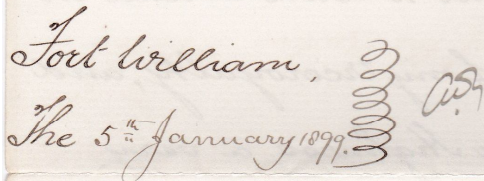 Fort William,
The 5th January 1899.